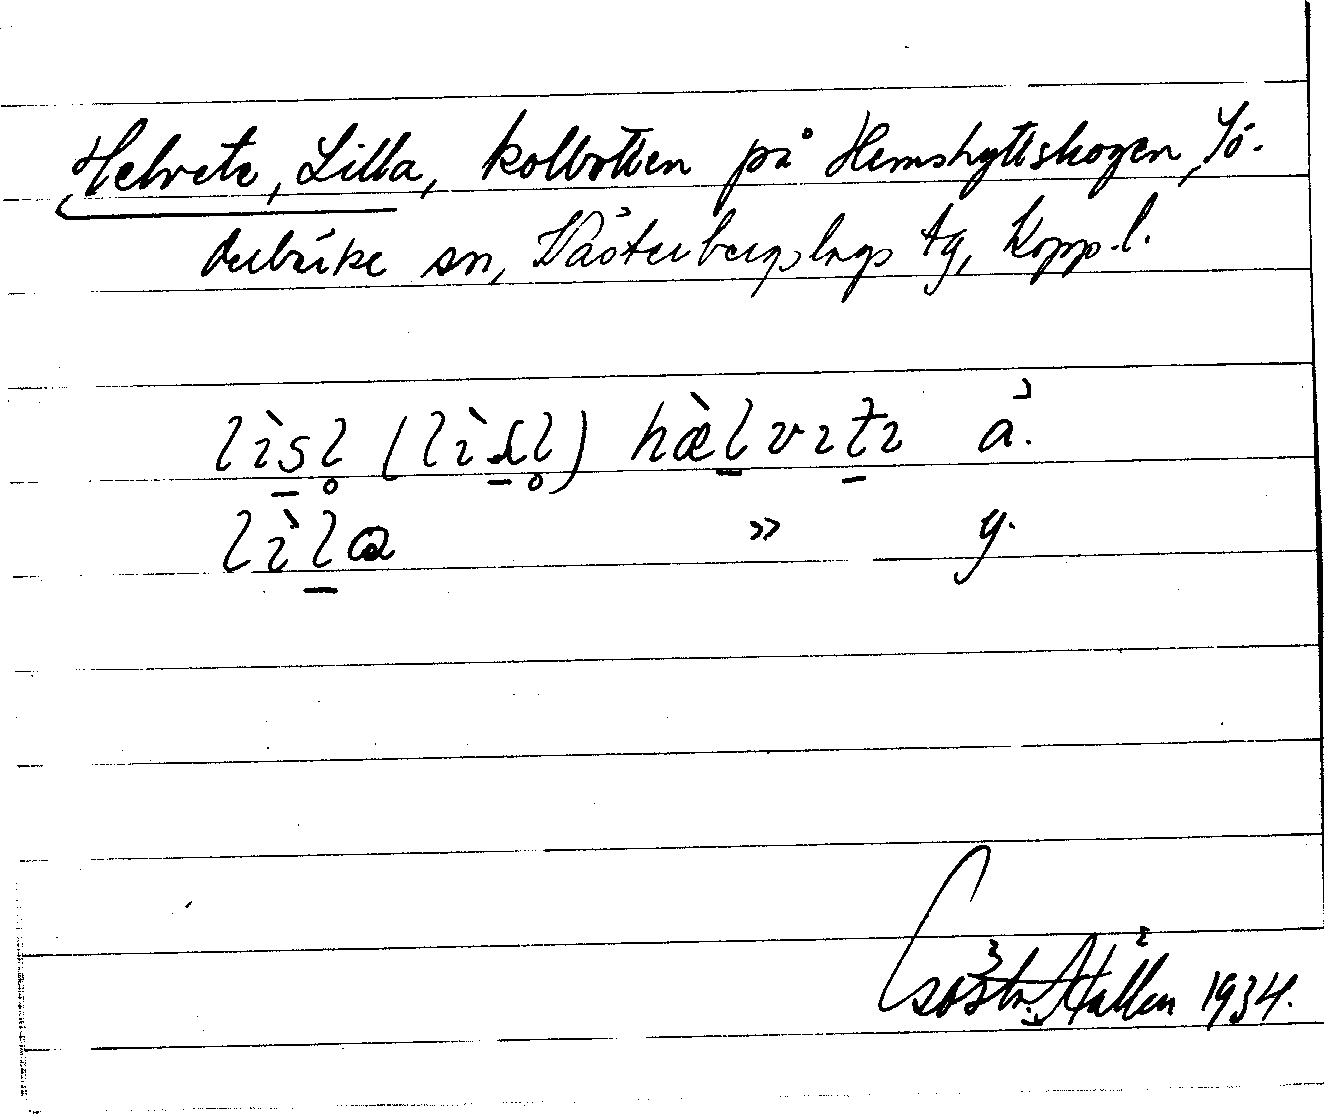 Helvete, Lilla, kolbotten på Hemshyttskogen, Sö-
derbärke sn, Västerbergslags tg, Kopp. l.
lìs̠l̥ (lì l̥) hæ̀l̠vɪt̠ɪ ä.
lɪ̀l̠a » y.
Hallén 1934.